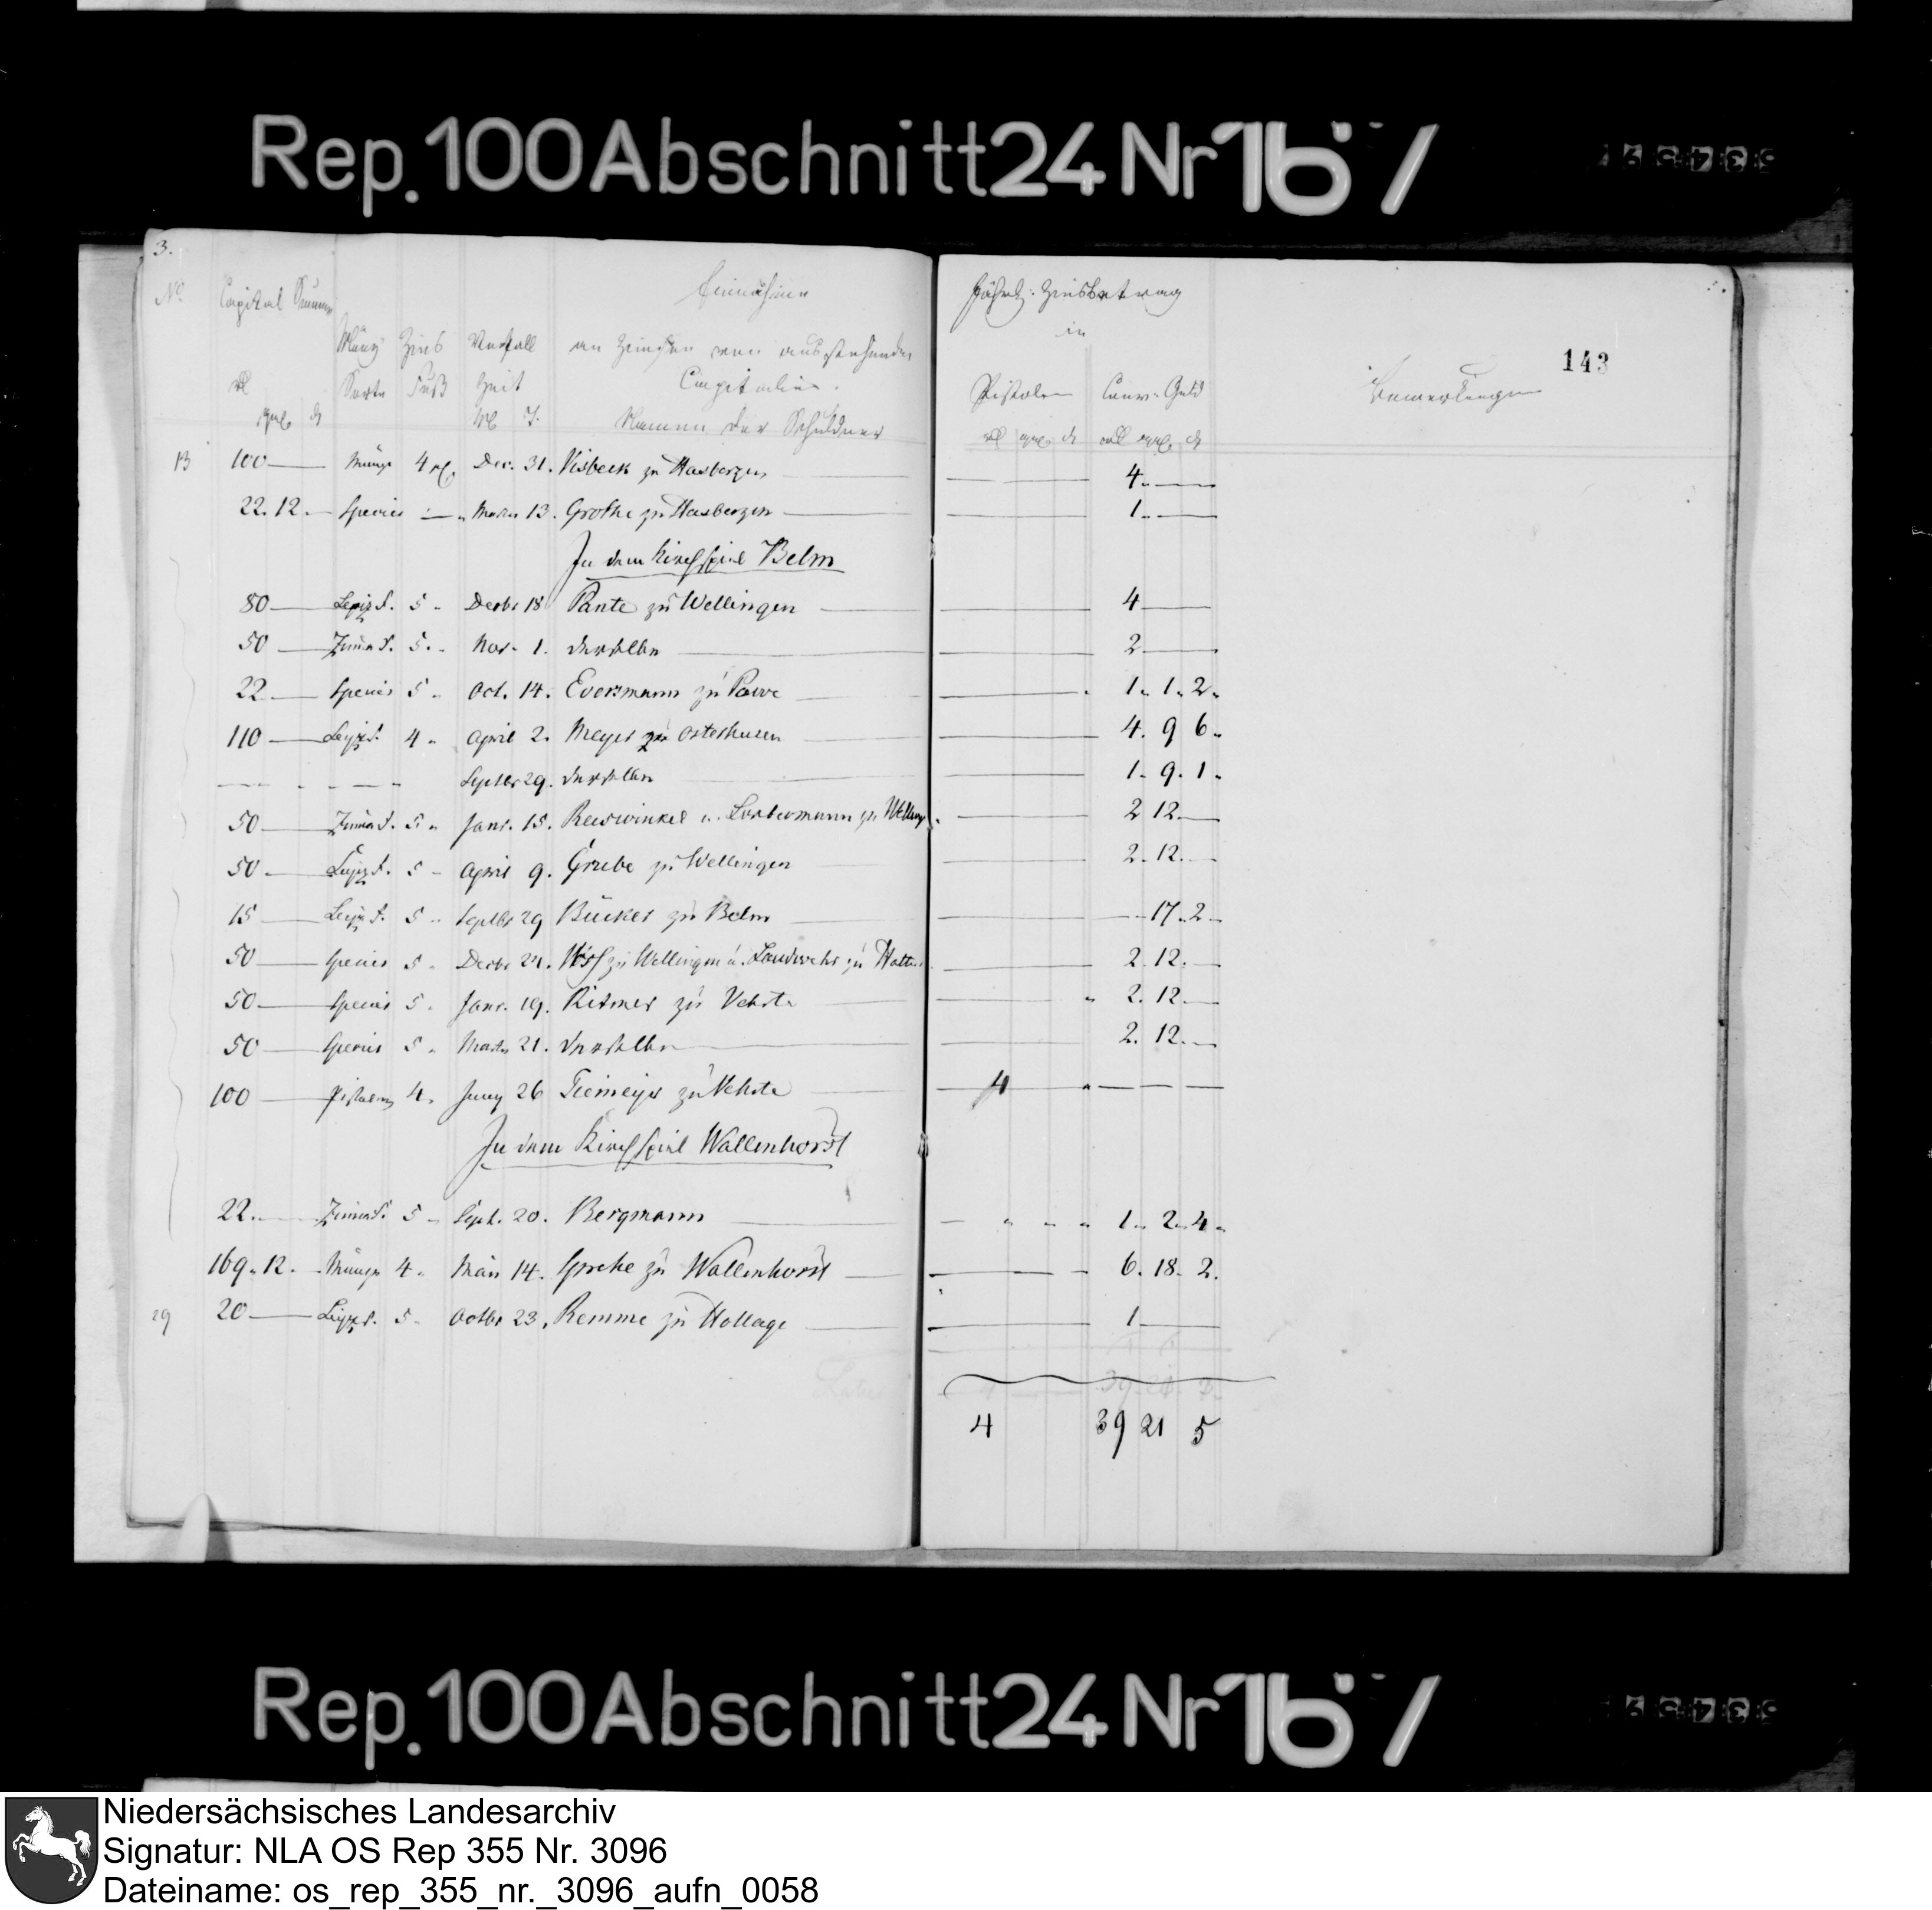 Rep. 100 Abschnitt 24 Nr 167
3.
143
No. Capital Summe Einnahme Jährl: Zinsbetrag
in
Münz Zins Verfall an Zinsen von ausstehenden
Sorte Fuß Zeit Capitalien. Pistolen Conv. Geld Bemerkungen
Namen der Schuldner
13 100 — Münze 4 Dec. 31. Visbeck zu Hasbergen — 4. —
22. 12. — Species — Martz 13. Grothe zu Hasbergen — 1. —
In dem Kirchspiel Belm
80 — 5 Decbr 18 Pante zu Wellingen — 4 —
50 — 5. Nov. 1. derselbe — 2 —
22 — Species 5 Oct. 14. Eversmann zu Powe — 1. 1. 2.
110 — 4 April 2. Meyer zu Osterhusen — 4. 9 6.
— Septbr 29. derselbe — 1. 9. 1.
50 — 5 Janr. 15. u. zu — 2 12. —
50 — 5 April 9. Grube zu Wellingen — 2. 12. —
15 — 5 Septbr 29 Bücker zu Belm — 17. 2
50 — Species 5 Decbr zu Wellingen u. Landwehr zu — 2. 12. —
50 — Species 5 Janr. 19. Ritmer zu Vehrte — 2. 12. —
50 — Species 5 Martz 21. derselbe — 2. 12. —
100 — Pistolen 4. Juny 26 Tiemeyer zu Vehrte — 4 — — —
In dem Kirchspiel Wallenhorst
22. — 5 Sept. 20. Bergmann — 1. 2. 4
169. 12. Münze 4 Mai 14. zu Wallenhorst — 6. 18. 2.
29 20 — 5 Octbr 23. Remme zu Hollage — 1 —
4 39 21 5
Rep. 100 Abschnitt 24 Nr 167
Niedersächsisches Landesarchiv
Signatur: NLA OS Rep 355 Nr. 3096
Dateiname: os_rep_355_nr._3096_aufn_0058